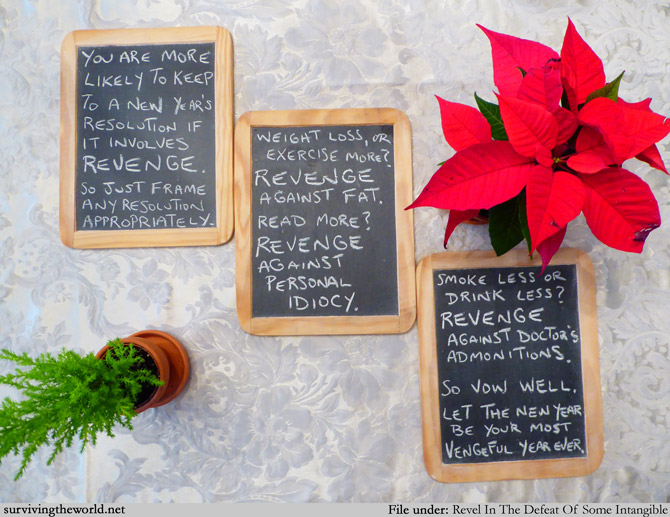 YOU ARE MORE
LIKELY TO KEEP
TO A NEW YEAR'S
RESOLUTION IF
IT INVOLVES
REVENGE.
SO JUST FRAME
ANY RESOLUTION
APPROPRIATELY.
WEIGHT LOSS, OR
EXERCISE MORE?
REVENGE
AGAINST FAT.
READ MORE?
REVENGE
AGAINST
PERSONAL
IDIOCY.
SMOKE LESS OR
DRINK LESS?
REVENGE
AGAINST DOCTOR'S
ADMONITIONS.
SO VOW WELL.
LET THE NEW YEAR
BE YOUR MOST
VENGEFUL YEAR EVER.
survivingtheworld.net
File under: Revel In The Defeat Of Some Intangible